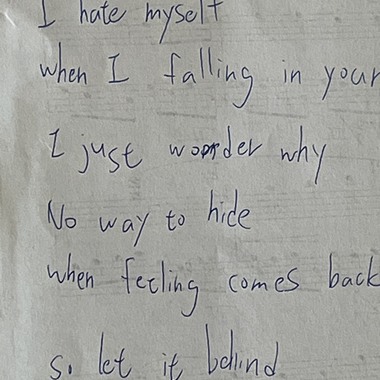 I hate myself
when I falling in your
I just wonder why
No way to hide
when feeling comes back
so let it behind